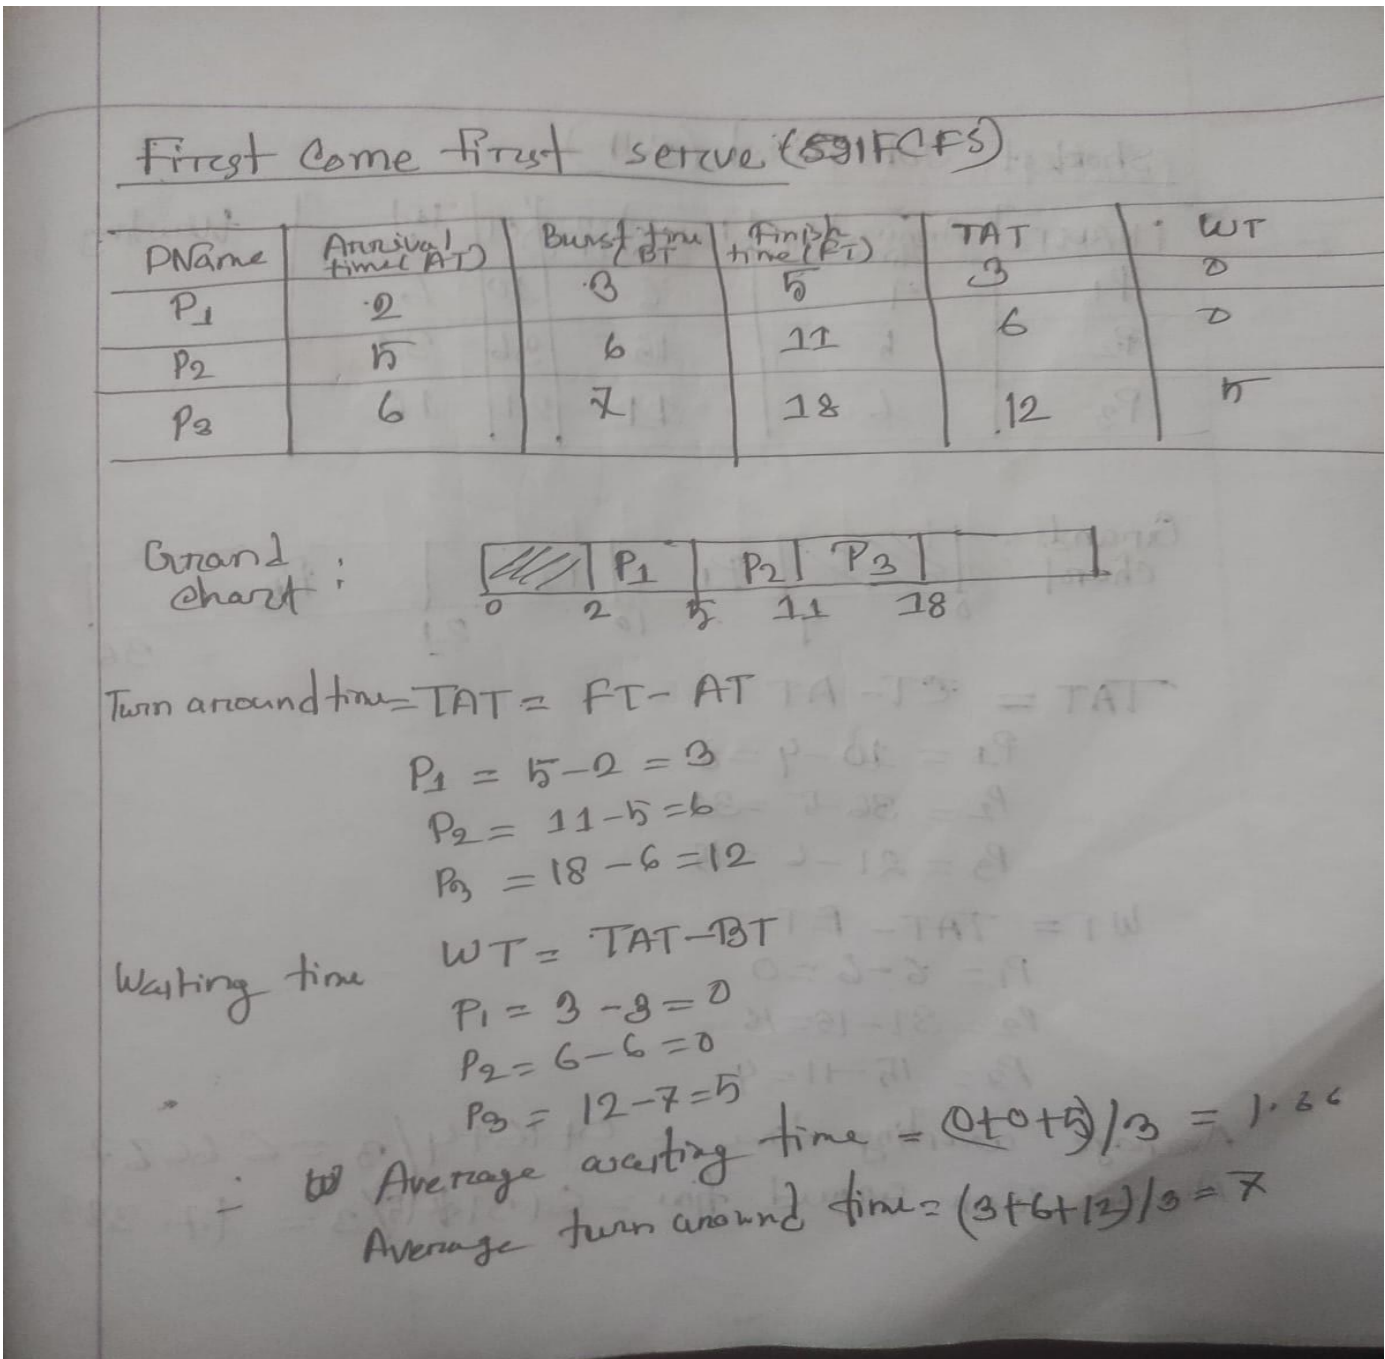 First Come first serve (591FCFS)
PName Arrival time(AT) Burst time (BT Finish time(FT) TAT WT
P1 2 3 5 3 0
P2 5 6 11 6 0
P3 6 7 18 12 5
Grand chart :
P1 P2 P3
0 2 5 11 18
Turn around time = TAT = FT - AT
P1 = 5-2 = 3
P2 = 11-5 = 6
P3 = 18-6 = 12
Waiting time WT = TAT-BT
P1 = 3-3 = 0
P2 = 6-6 = 0
P3 = 12-7 = 5
Average waiting time = (0+0+5)/3 = 1.66
Average turn around time = (3+6+12)/3 = 7